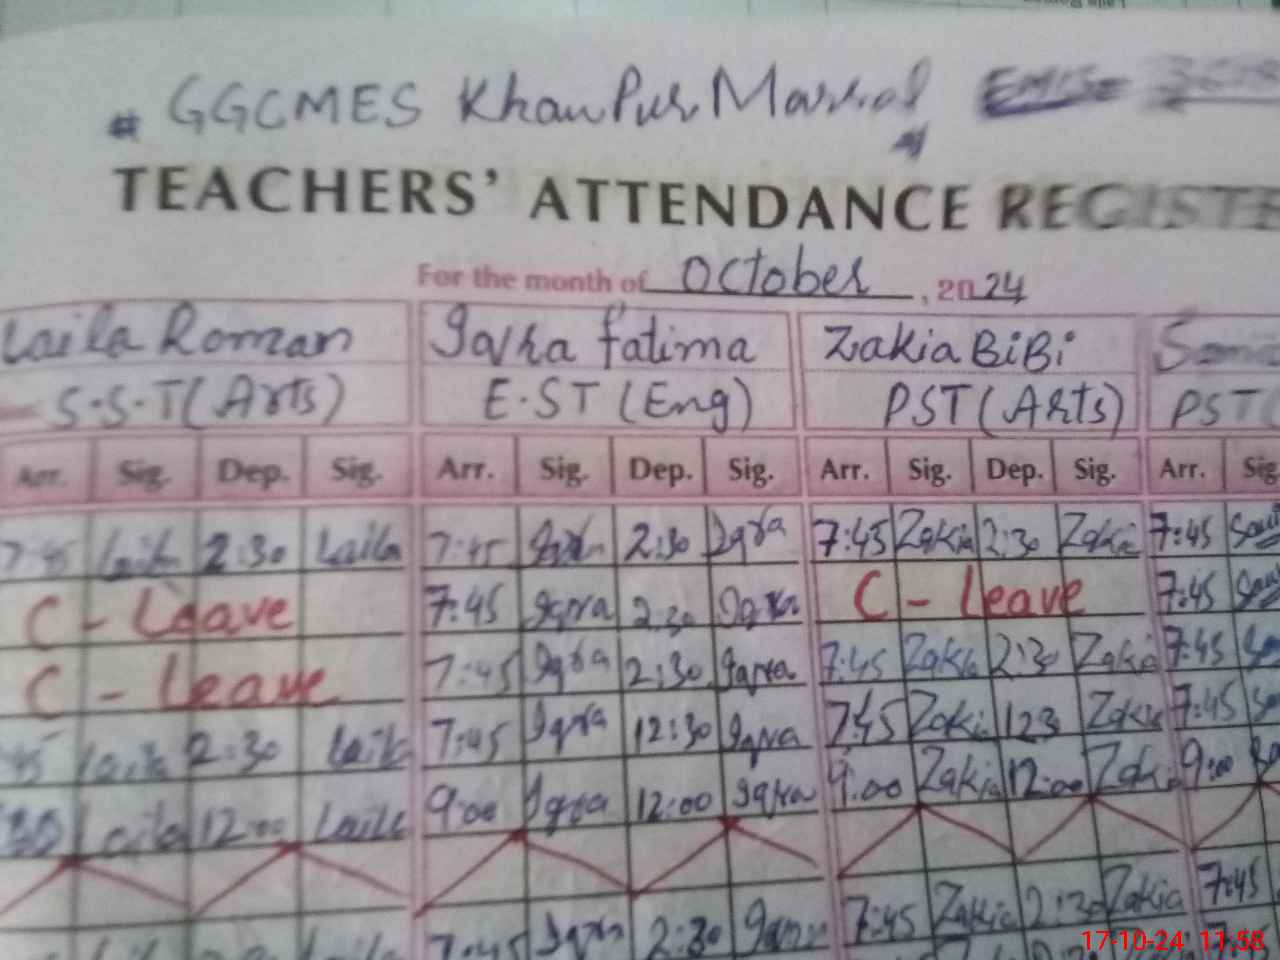 GGCMES KhanPur Marral EMISE
TEACHERS' ATTENDANCE REGISTE
For the month of October, 2024
Laila Roman Iqra fatima Zakia BiBi
S.S.T (Arts) E.ST (Eng) PST (Arts) PST (
Arr. Sig. Dep. Sig. Arr. Sig. Dep. Sig. Arr. Sig. Dep. Sig. Arr. Sig
7:45 Laila 2:30 Laila 7:45 Iqra 2:30 Iqra 7:45 Zakia 2:30 Zakia 7:45
C - Leave 7:45 Iqra 2:30 Iqra C - Leave 7:45
C - Leave 7:45 Iqra 2:30 Iqra 7:45 Zakia 2:30 Zakia 7:45
45 Laila 2:30 Laila 7:45 Iqra 12:30 Iqra 7:45 Zaki 123 Zakia 7:45
30 Laila 12:00 Laila 9:00 Iqra 12:00 Iqra 9:00 Zakia 12:00 Zakia 9:00
7:45 Iqra 2:30 Iqra 7:45 Zakia 2:30 Zakia 7:45
17-10-24 11:58